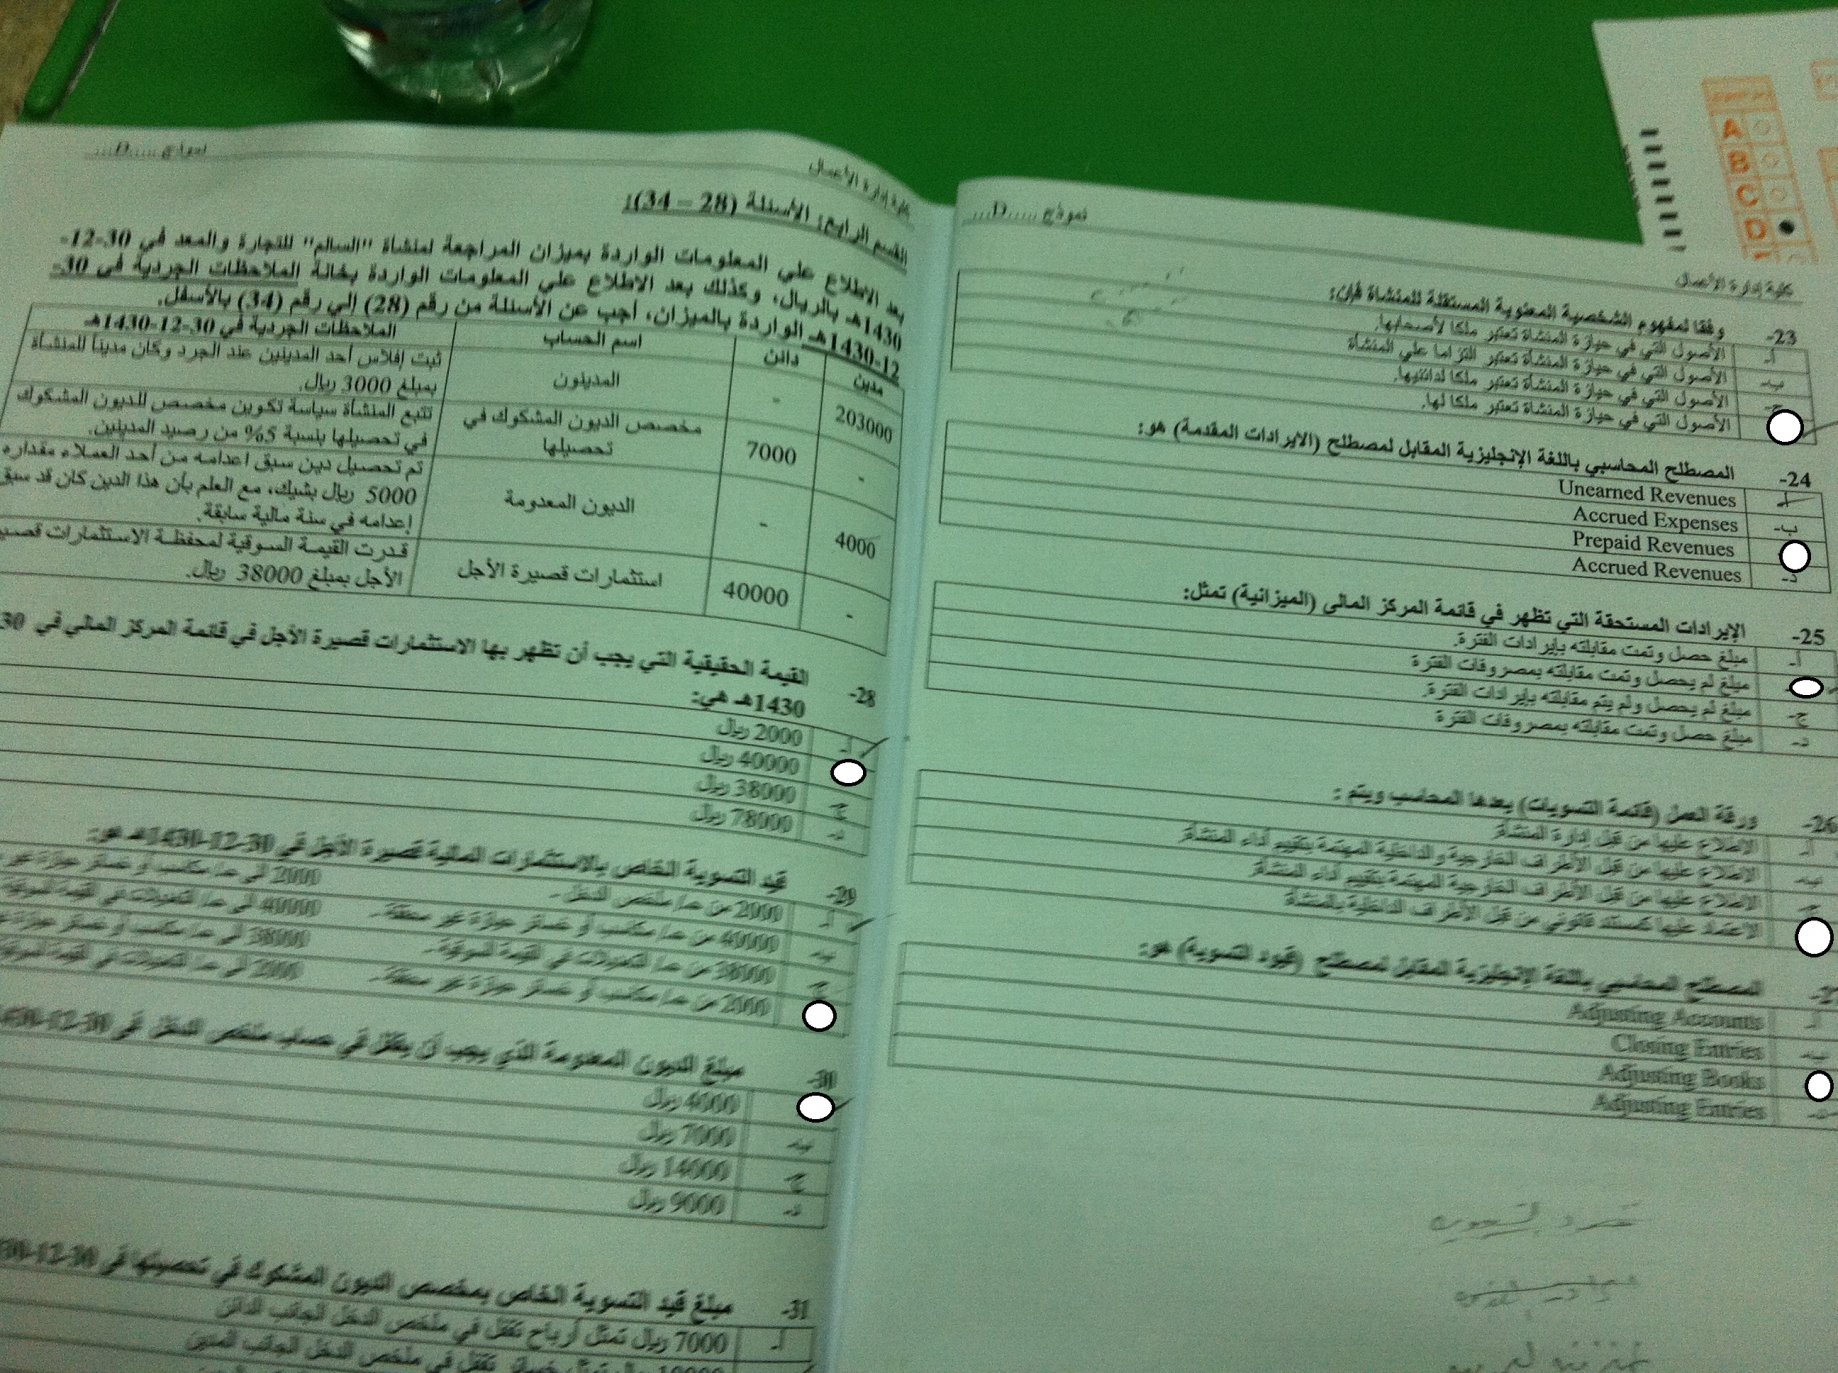 كلية إدارة الأعمال
نموذج .....D....
23- وفقا لمفهوم الشخصية المعنوية المستقلة للمنشاة فإن:
أ- الأصول التي في حيازة المنشاة تعتبر ملكا لأصحابها.
ب- الأصول التي في حيازة المنشاة تعتبر التزاما علي المنشاة
ج- الأصول التي في حيازة المنشاة تعتبر ملكا لدائنيها.
الأصول التي في حيازة المنشاة تعتبر ملكا لها.
24- المصطلح المحاسبي باللغة الإنجليزية المقابل لمصطلح (الايرادات المقدمة) هو:
أ- Unearned Revenues
ب- Accrued Expenses
Prepaid Revenues
د- Accrued Revenues
25- الإيرادات المستحقة التي تظهر في قائمة المركز المالي (الميزانية) تمثل:
أ- مبلغ حصل وتمت مقابلته بإيرادات الفترة.
مبلغ لم يحصل وتمت مقابلته بمصروفات الفترة
ج- مبلغ لم يحصل ولم يتم مقابلته بإيرادات الفترة.
د- مبلغ حصل وتمت مقابلته بمصروفات الفترة
26- ورقة العمل (قائمة التسويات) يعدها المحاسب ويتم :
أ- الاطلاع عليها من قبل إدارة المنشاة.
ب- الاطلاع عليها من قبل الأطراف الخارجية والداخلية المهتمة بتقييم أداء المنشاة.
ج- الاطلاع عليها من قبل الأطراف الخارجية المهتمة بتقييم أداء المنشاة.
الاعتماد عليها كمستند قانوني من قبل الأطراف الداخلية بالمنشاة
المصطلح المحاسبي باللغة الإنجليزية المقابل لمصطلح (قيود التسوية) هو:
أ- Adjusting Accounts
ب- Closing Entries
Adjusting Books
د- Adjusting Entries
كلية إدارة الأعمال
نموذج .....D....
القسم الرابع: الأسئلة (28 – 34):
بعد الاطلاع علي المعلومات الواردة بميزان المراجعة لمنشاة "السالم" للتجارة والمعد في 30-12-
1430هـ بالريال، وكذلك بعد الاطلاع علي المعلومات الواردة بخانة الملاحظات الجردية في 30-
12-1430هـ الواردة بالميزان، أجب عن الأسئلة من رقم (28) إلي رقم (34) بالأسفل.
مدين دائن اسم الحساب الملاحظات الجردية في 30-12-1430هـ
203000 - المدينون ثبت إفلاس أحد المدينين عند الجرد وكان مدينا للمنشاة
بمبلغ 3000 ريال.
- 7000 مخصص الديون المشكوك في تحصيلها تتبع المنشاة سياسة تكوين مخصص للديون المشكوك
في تحصيلها بنسبة 5% من رصيد المدينين.
4000 - الديون المعدومة تم تحصيل دين سبق اعدامه من أحد العملاء مقداره
5000 ريال بشيك، مع العلم بأن هذا الدين كان قد سبق
إعدامه في سنة مالية سابقة.
- 40000 استثمارات قصيرة الأجل قدرت القيمة السوقية لمحفظة الاستثمارات
الأجل بمبلغ 38000 ريال.
28- القيمة الحقيقية التي يجب أن تظهر بها الاستثمارات قصيرة الأجل في قائمة المركز المالي في 30
1430هـ هي:
أ- 2000 ريال
40000 ريال
ج- 38000 ريال
د- 78000 ريال
29- قيد التسوية الخاص بالاستثمارات المالية قصيرة الأجل في 30-12-1430هـ هو:
أ- 2000 من حـ/ ملخص الدخل. 2000 الى حـ/ مكاسب أو خسائر حيازة غير
ب- 40000 من حـ/ مكاسب أو خسائر حيازة غير محققة. 40000 الى حـ/ التعديلات في القيمة السوقية
ج- 38000 من حـ/ التعديلات في القيمة السوقية. 38000 الى حـ/ مكاسب أو خسائر حيازة
2000 من حـ/ مكاسب أو خسائر حيازة غير محققة. 2000 الى حـ/ التعديلات في القيمة السوقية
30- مبلغ الديون المعدومة الذي يجب أن يقفل في حساب ملخص الدخل في 30-12-1430
4000 ريال
ب- 7000 ريال
ج- 14000 ريال
د- 9000 ريال
31- مبلغ قيد التسوية الخاص بمخصص الديون المشكوك في تحصيلها في 30-12-
أ- 7000 ريال تمثل أرباح تقفل في ملخص الدخل الجانب الدائن
ريال تمثل خسائر تقفل في ملخص الدخل الجانب المدين
A
B
C
D